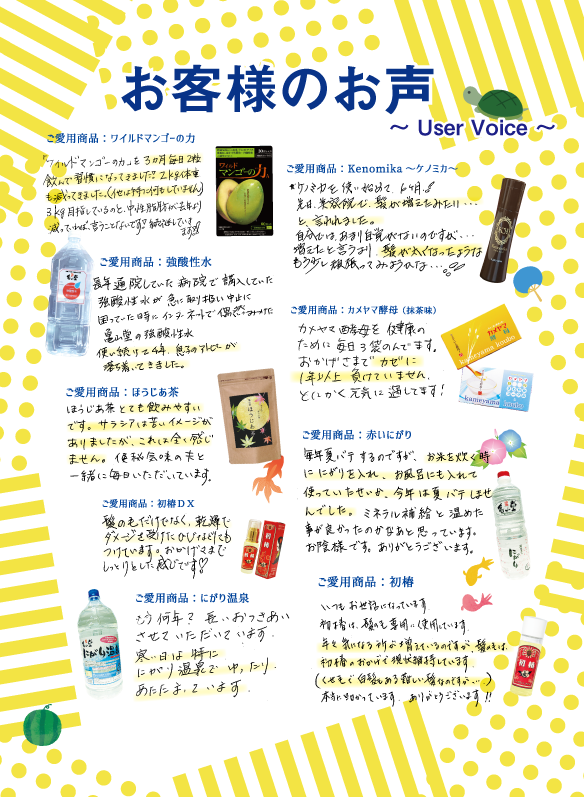 お客様のお声
～ User Voice ～
ご愛用商品：ワイルドマンゴーの力
「ワイルドマンゴーの力」を3カ月毎日2粒
飲んで習慣になってきました。2kg体重
も減ってきました。(他は何もしていません)
3kg目指しているのと、中性脂肪が去年より
減っていれば言うことないです!! 継続しています
ワイルド
マンゴーの力
ご愛用商品：Kenomika ～ケノミカ～
ケノミカを使い始めて、6ヶ月
先日、美容院で、髪が増えたみたい・・・
と、言われました。
自分では、あまり自覚がないのですが・・・
増えたと言うより、髪が太くなったような
もう少し頑張ってみようかな・・・
ご愛用商品：強酸性水
長年通院していた病院で購入していた
強酸性水が急に取り扱い中止に
困っていた時にインターネットで偶然みつけた
亀山堂の強酸性水
使い続けて4年、息子のアトピーが
落ち着いてきました。
ご愛用商品：カメヤマ酵母（抹茶味）
カメヤマ酵母を健康の
ために毎日3袋のんでます。
おかげさまでカゼに
1年以上負けていません
とにかく元気に過してます!
カメヤマ
酵母
kameyama koubo
kameyama koubo
ご愛用商品：ほうじあ茶
ほうじあ茶とても飲みやすい
です。サラシアは苦いイメージが
ありましたが、これは全く感じ
ません。便秘気味の夫と
一緒に毎日いただいています。
ほうじあ茶
ご愛用商品：赤いにがり
毎年夏バテするのですが、お米を炊く時
ににがりを入れ、お風呂にも入れて
使っていたせいか、今年は夏バテしませ
んでした。ミネラル補給と温めた
事が良かったのかなあと思っています。
お陰様です。ありがとうございます。
にがり
ご愛用商品：初椿ＤＸ
髪の毛だけでなく、乾燥で
ダメージを受けたひじなどにも
つけています。おかげさまで
しっとりとした感じです♡
初椿
ご愛用商品：にがり温泉
もう何年？長いおつきあい
させていただいています。
寒い日は特に
にがり温泉でゆったり、
あたたまっています。
にがり温泉
ご愛用商品：初椿
いつもお世話になっています
初椿は、髪の毛専用に使用しています。
年々気になる所が増えているのですが、髪の毛は、
初椿のおかげで現状維持しています。
本当に助かっています。ありがとうございます!!
初椿